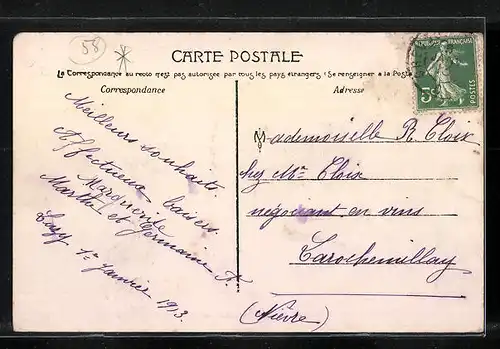 58
CARTE POSTALE
La Correspondance au recto n'est pas autorisée par tous les pays étrangers (Se renseigner à la Poste
Correspondance
Adresse
Meilleurs souhaits.
Affectueux baisers.
Marguerite
Marthe et Germaine F.
Luzy 1er Janvier 1913
REPUBLIQUE FRANÇAISE
5c
POSTES
Mademoiselle R. Cloix
chez Mr Cloix
négociant en vins
Larochemillay
(Nièvre)